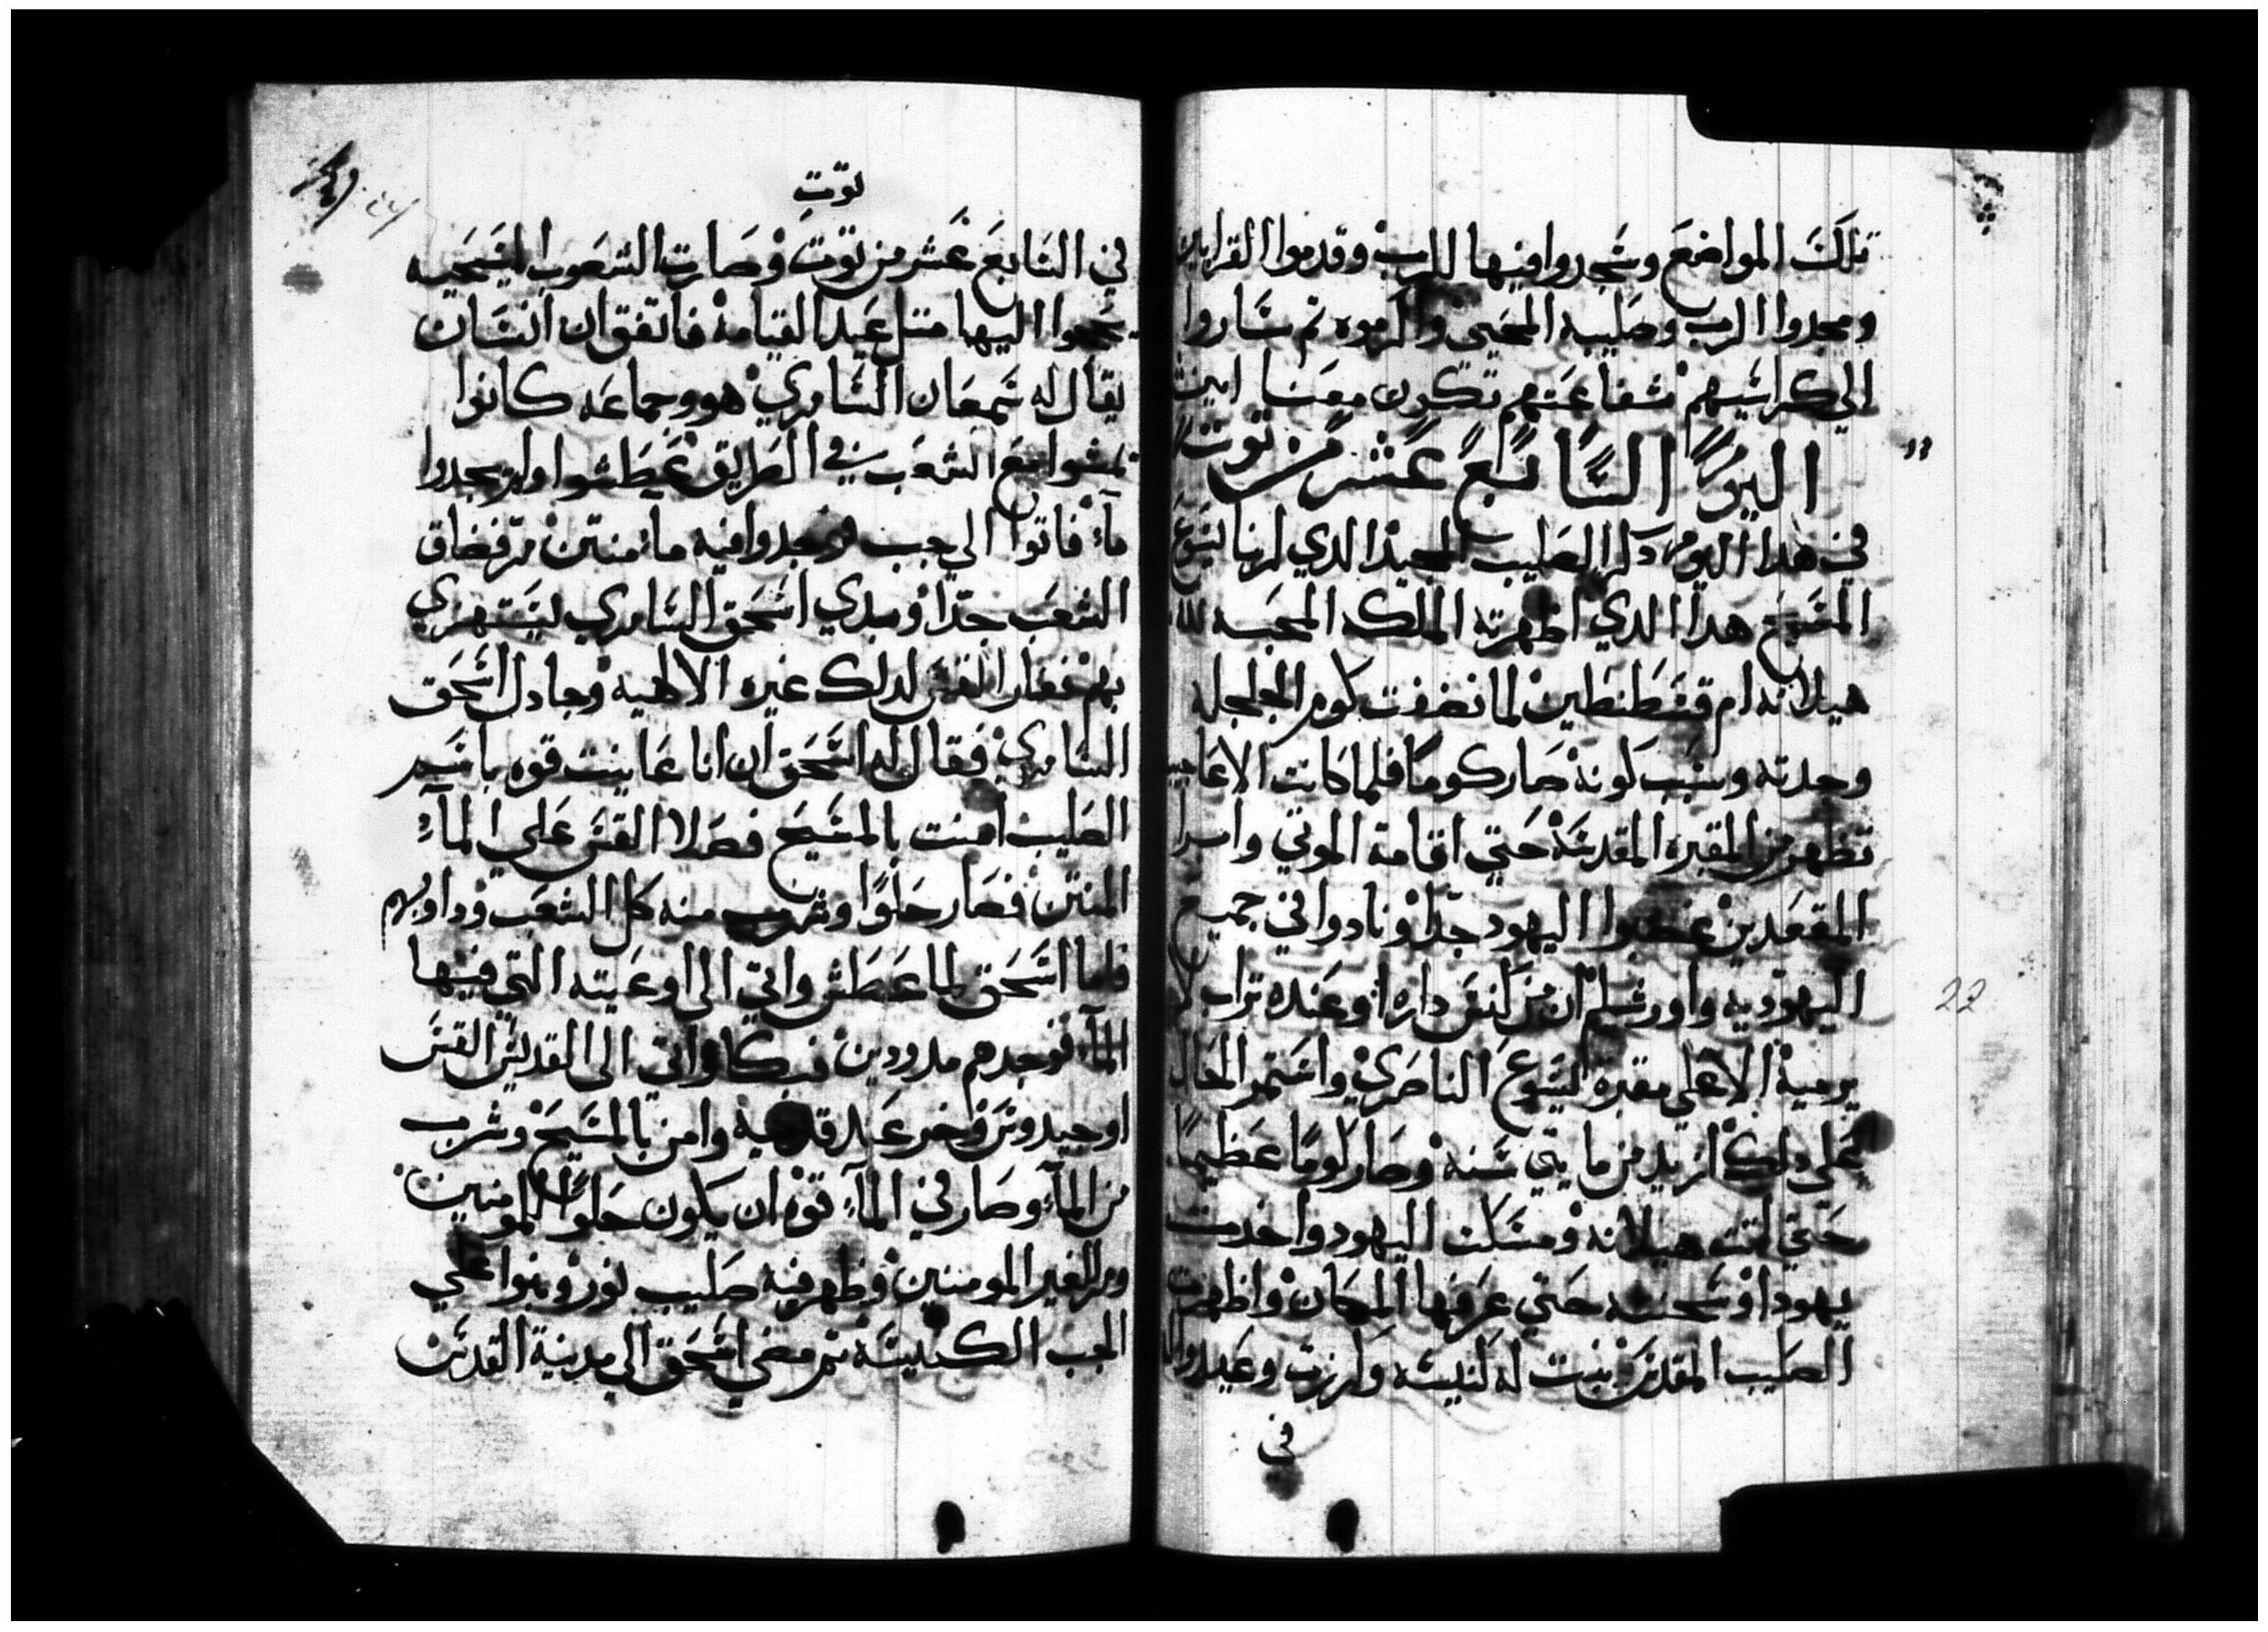 تلك المواضع وسجدوا فيها للرب وقدموا القرابين
ومجدوا الرب وصليبه المحيى واكرموه تم ساروا
الي كراسيهم شفاعتهم تكون معنا امين
اليوم السابع عشر من توت
في هدا اليوم دكر الصليب المجيد الدي لربنا يسوع
المسيح هدا الدي اظهرته الملكه المحبه لله
هيلانه ام قسطنطين لما نضفت كوم الجلجله
وجدته وسبب كونه صار كوما فلما كانت الاعاجيب
تظهر من المقبره المقدسه حتي اقامة الموتي وابرا
المقعدين غضبوا اليهود جدا ونادوا في جميع
اليهوديه واورشليم ان من كنس داره او عنده تراب
يرميه الا علي مقبرة يسوع الناصري واستمر الحال
علي دلك ازيد من مايتي سنه وصار كوما عظيما
حتي اتت هيلانه ومسكت اليهود واخدت
يهودا وسجنته حتي عرفها المكان واظهرت
الصليب المقدس بنت له كنيسه وكرزت وعيدوا
في
توت
في السابع عشر من توت وصارت الشعوب المسيحيه
يحجوا اليها متل عيد القيامة فاتفق ان انسان
يقال له سمعان السامري هو وجماعه كانوا
يمشوا مع الشعب في الطريق عطشوا ولم يجدوا
ماء فاتوا الي جب ووجدوا فيه ماء منتن مر فضاق
الشعب جدا وبدي اسحق السامري ليستهزي
بهم فغار القس لدلك غيره الالهيه وجادل اسحق
السامري فقال له اسحق ان انا عاينت قوه باسم
الصليب امنت بالمسيح فصلا القس علي الماء
المنتن فصار حلوا وشرب منه كل الشعب ودوابهم
فاما اسحق لما عطش واتي الي اوعيته التي فيها
الماء فوجدهم مدودين فبكا واتي الي القديس القس
اوجيدوس وخر عند قدميه وامن بالمسيح وشرب
من الماء وصار في الماء قوه ان يكون حلوا للمومنين
ومر لغير المومنين وظهر فيه صليب نور وبنوا علي
الجب الكنيسه تم مضي اسحق الي مدينة القدس
22